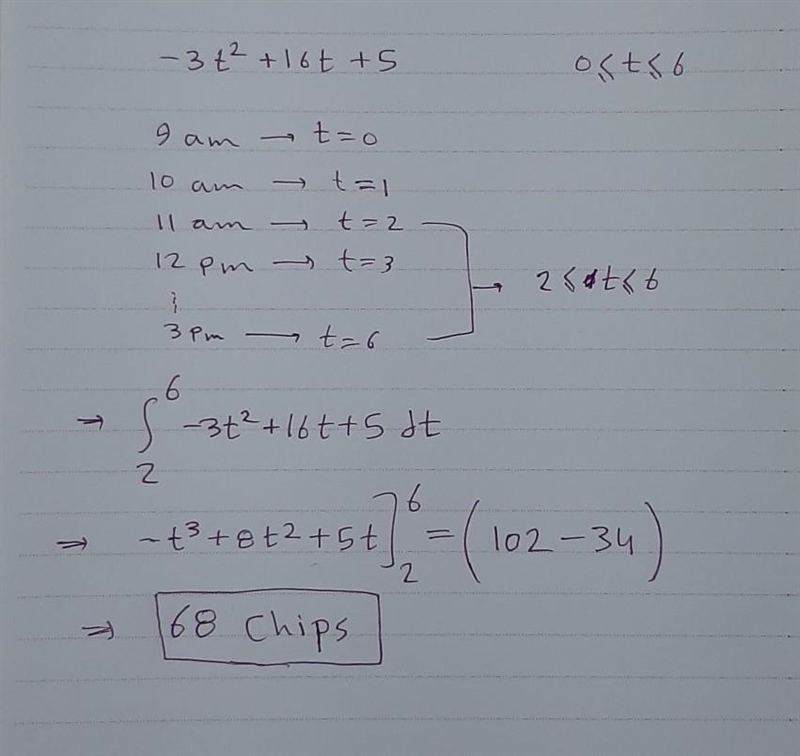 -3t² +16t +5 0≤t≤6
9 am → t=0
10 am → t=1
11 am → t=2
12 pm → t=3
⋮
3 pm → t=6
→ 2≤t≤6
⇒ ∫₂⁶ -3t²+16t+5 dt
⇒ -t³+8t²+5t]₂⁶ = (102-34)
⇒ 68 Chips